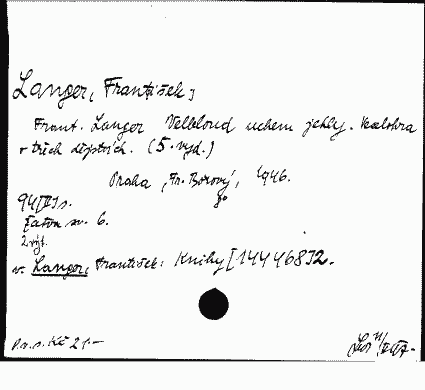 Langer, František]
Frant. Langer Velbloud uchem jehly. Veselohra
o třech dějstvích. (5. vyd.)
Praha, Fr. Borový, 1946.
8°
94 s.
sv. 6.
2 výt.
v. Langer, František: Knihy [144468]2.
Kč 21.-